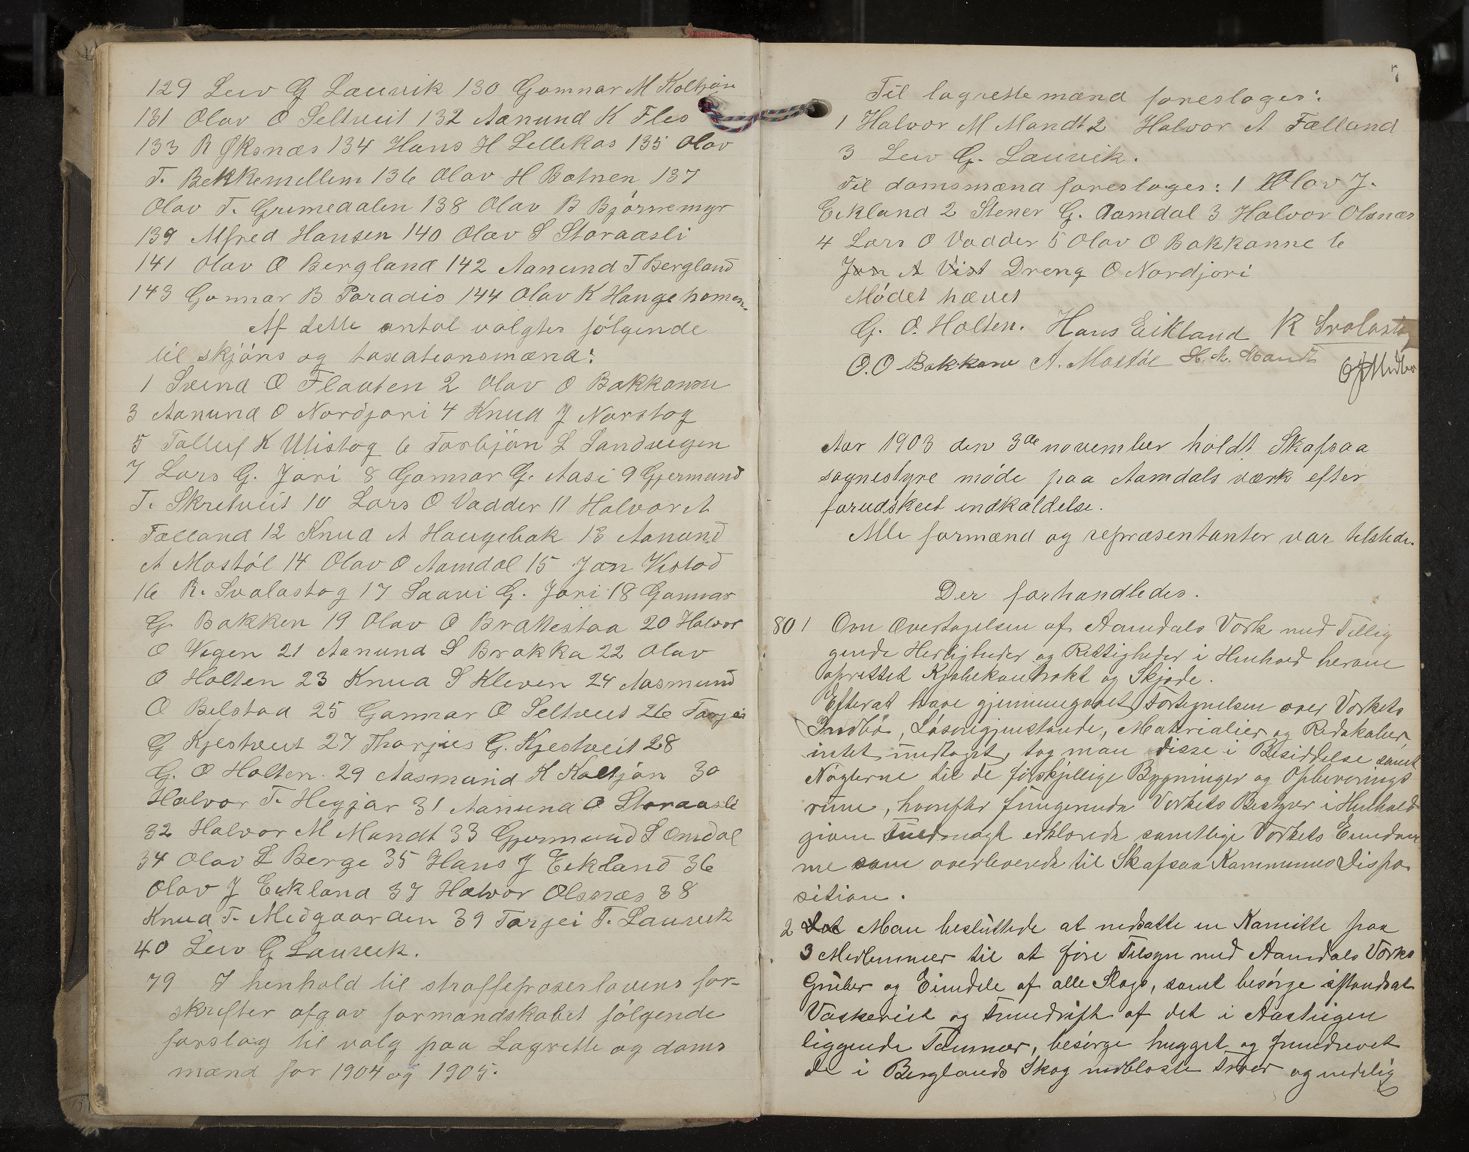 129 Leiv G Laurvik 130 Gunnar M Koltjón
131 Olav O Seltveit 132 Aanund K Fles
133 R Øksnæs 134 Hans H Lillekas 135 Olav
T. Bekkemellem 136 Olav H Botnen 137
Olav T. Grimedalen 138 Olav B Bjørnemyr
139 Alfred Hansen 140 Olav S Storaasli
141 Olav O Bergland 142 Aanund T Bergland
143 Gunnar B Paradis 144 Olav K Haugehomen
Af dette antal valgtes følgende
til skjöns og taxationsmænd:
1 Svend O Flauten 2 Olav O Bakkanne
3 Aanund O Nordjori 4 Knud J Norstog
5 Talluf K Utistog 6 Torbjön L Sandvigen
7 Lars G. Jori 8 Gunnar G. Aasi 9 Gjermund
T. Skretveit 10 Lars O Vadder 11 Halvor A
Fælland 12 Knud A Haugebak 13 Aanund
A Mostöl 14 Olav O Aamdal 15 Jon Vistad
16 R. Svalastog 17 Saavi G. Jori 18 Gunnar
G Bakken 19 Olav O Brattestaa 20 Halvor
O Vegen 21 Aanund S Brokka 22 Olav
O Holten 23 Knud S Kleven 24 Aasmund
O Bilstad 25 Gunnar O Seltveit 26 Torjei
G Kjestveit 27 Thorjus G. Kjestveit 28
G. O Holten. 29 Aasmund K Koltjón 30
Halvor T. Heggjar 31 Aanund O Storaasli
32 Halvor M Mandt 33 Gjermund S Omdal
34 Olav L Berge 35 Hans J Eikland 36
Olav J Eikland 37 Halvor Olsnæs 38
Knud T. Midgaarden 39 Torjei T. Laurvik
40 Leiv G Laurvik.
79 I henhold til straffeproseslovens for-
skrifter afgav formandskabet følgende
forslag til valg paa Lagrette og doms
mænd for 1904 og 1905.
7
Til lagrettemænd foreslages:
1 Halvor M Mandt 2 Halvor A Fælland
3 Leiv G. Laurvik.
Til domsmænd foreslages: 1 Olav J.
Eikland 2 Stener G. Aamdal 3 Halvor Olsnæs
4 Lars O Vadder 5 Olav O Bakkanne 6
Jon A Vist Dreng O Nordjori
Mødet hævet
G. O. Holten. Hans Eikland R Svalastog
O. O Bakkane A. Mostöl H. M. Mandt
Aar 1903 den 3de november holdt Skafsaa
sognestyre møde paa Aamdals værk efter
forudskeet indkaldelse.
Alle formænd og repræsentanter var tilstede.
Der forhandledes.
80 1 Om Overtagelsen af Aamdals Værk med Tillig
gende Herligheder og Rettigheder i Henhold herom
oprettet Kjøbekontrakt og Skjøde.
Efterat have gjennemgaaet Fortegnelsen over Værkets
Indbo, Løsøregjenstande, Materialier og Redskaber,
intet undtaget, tog man disse i Besiddelse samt
Nøglerne til de forskjellige Bygninger og Opbevarings
rum, hvorefter fungerende Værkets Bestyrer i Henhold
given Fuldmagt erklærede samtlige Værkets Eiendom
me som overleverede til Skafsaa Kommunes Dispo
sition.
2 Man besluttede at nedsætte en Komitte paa
3 Medlemmer til at føre Tilsyn med Aamdals Værks
Gruber og Eiendele af alle Slags, samt besørge istandsat
Vaskeriet og Fremdrift af det i Aastigen
liggende Tømmer, besørge hugget og fremdrevet
de i Berglands Skog udbleste Træer og endelig